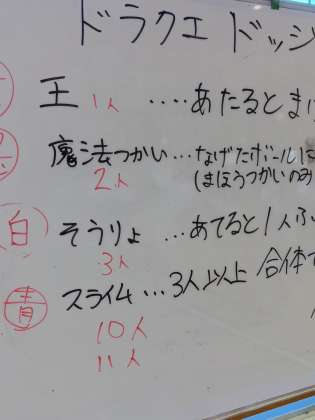 ドラクエ ドッジ
王 1人 ‥‥あたるとまけ
魔法つかい…なげたボールに
2人 (まほうつかいのみ
白 そうりょ …あてると1人ふ
3人
青 スライム…3人以上 合体で
10人
11人